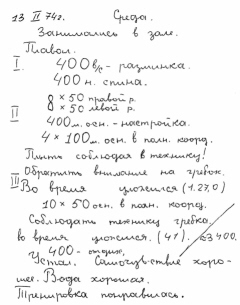 13 II 74г. Среда.
Занимались в зале.
Плавал.
I 400 в/с - разминка.
400 н. спина.
8 × 50 правой р.
8 × 50 левой р.
II 400 м. осн. - настройка.
4 × 100 м. осн. в полн. коорд.
Плыть соблюдая технику!
Обратить внимание на гребок.
III Во время уложился (1.27,0)
10 × 50 осн. в полн. коорд.
Соблюдать технику гребка.
во время уложился. (41)
400 - отдых.
Устал. Самочувствие хоро-
шее. Вода хорошая.
Тренировка понравилась.